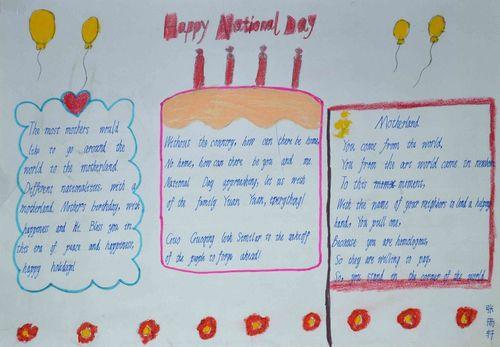 Happy National Day
The most mothers would
like to go around the
world to the motherland.
Different nationalities, wish a
motherland Mother's birthday, wish
happiness and He. Bless you in
this era of peace and happiness,
happy holidays!
Without the country, how can there be home,
No home, how can there be you and me.
National Day approaching, let us wish
of the family Yuan Yuan, everything!
Guoqing look Similar to the takeoff
of the people to forge ahead!
Motherland
You come from the world,
You from the art world come in
To this moment,
With the name of your neighbors to lend a helping
hand, You pull me,
Because you are homologous,
So they are willing to pay,
So you stand in the corner of the world